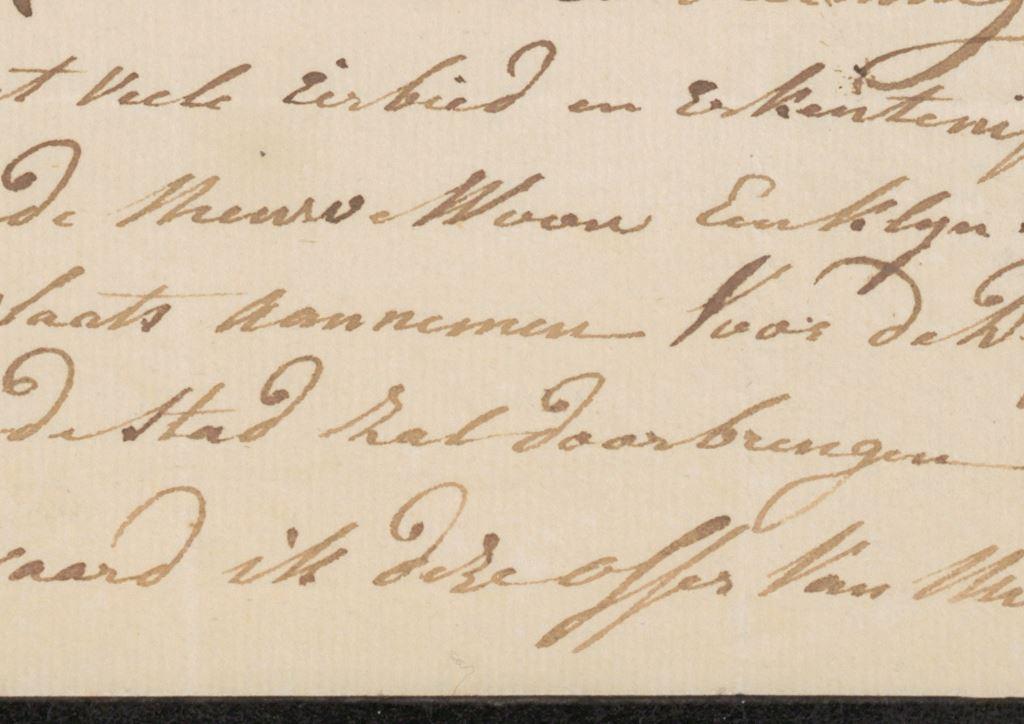 t Veele Eirbied en Erkenteni
de Nieuwe Woon Een klyn
laats aannemen Voor de
de Stad zal doorbrengen
vaard ik deze offer Van